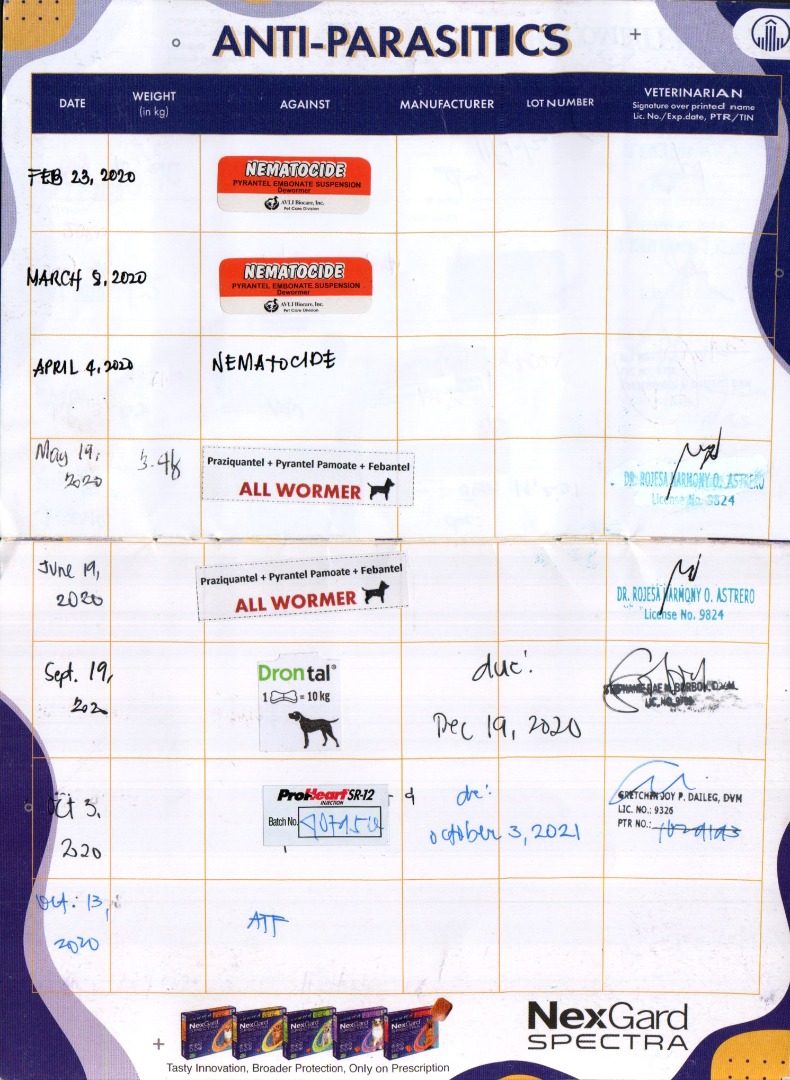 ANTI-PARASITICS
DATE
WEIGHT
(in kg)
AGAINST
MANUFACTURER
LOT NUMBER
VETERINARIAN
Signature over printed name
Lic. No./Exp.date, PTR/TIN
FEB 23, 2020
NEMATOCIDE
PYRANTEL EMBONATE SUSPENSION
Dewormer
AVLI Biocare, Inc.
Pet Care Division
MARCH 8, 2020
NEMATOCIDE
PYRANTEL EMBONATE SUSPENSION
Dewormer
AVLI Biocare, Inc.
Pet Care Division
APRIL 4, 2020
NEMATOCIDE
May 19,
2020
3.48
Praziquantel + Pyrantel Pamoate + Febantel
ALL WORMER
DR. ROJESA HARMONY O. ASTRERO
License No. 9824
June 19,
2020
Praziquantel + Pyrantel Pamoate + Febantel
ALL WORMER
DR. ROJESA HARMONY O. ASTRERO
License No. 9824
Sept. 19,
202
Drontal®
1 = 10 kg
due:
Dec 19, 2020
LIC. NO.
Oct 3,
2020
ProHeart SR-12
INJECTION
Batch No.
due:
October 3, 2021
GRETCHIN JOY P. DAILEG, DVM
LIC. NO.: 9326
PTR NO.:
Oct. 13,
2020
ATF
NexGard
SPECTRA
Tasty Innovation, Broader Protection, Only on Prescription